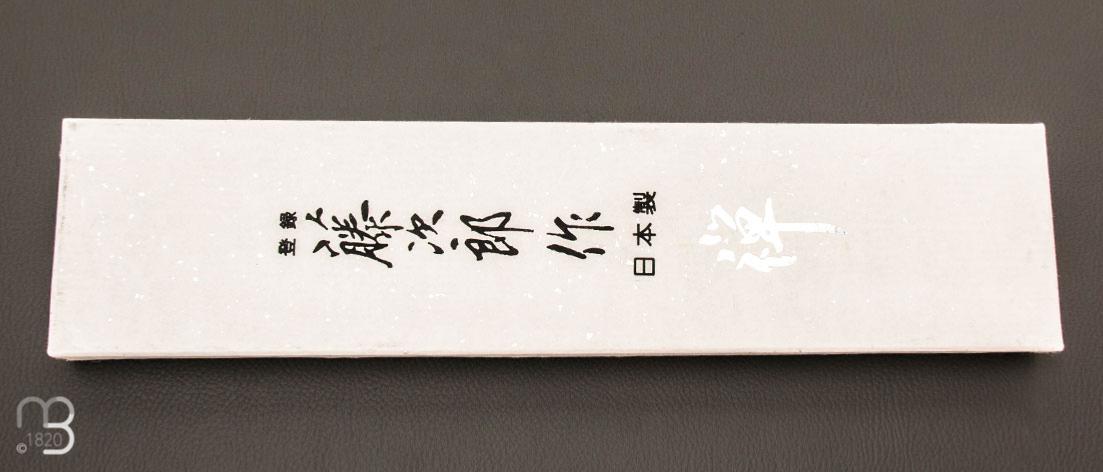 登録
藤次郎 作
日本製
禅
©1820